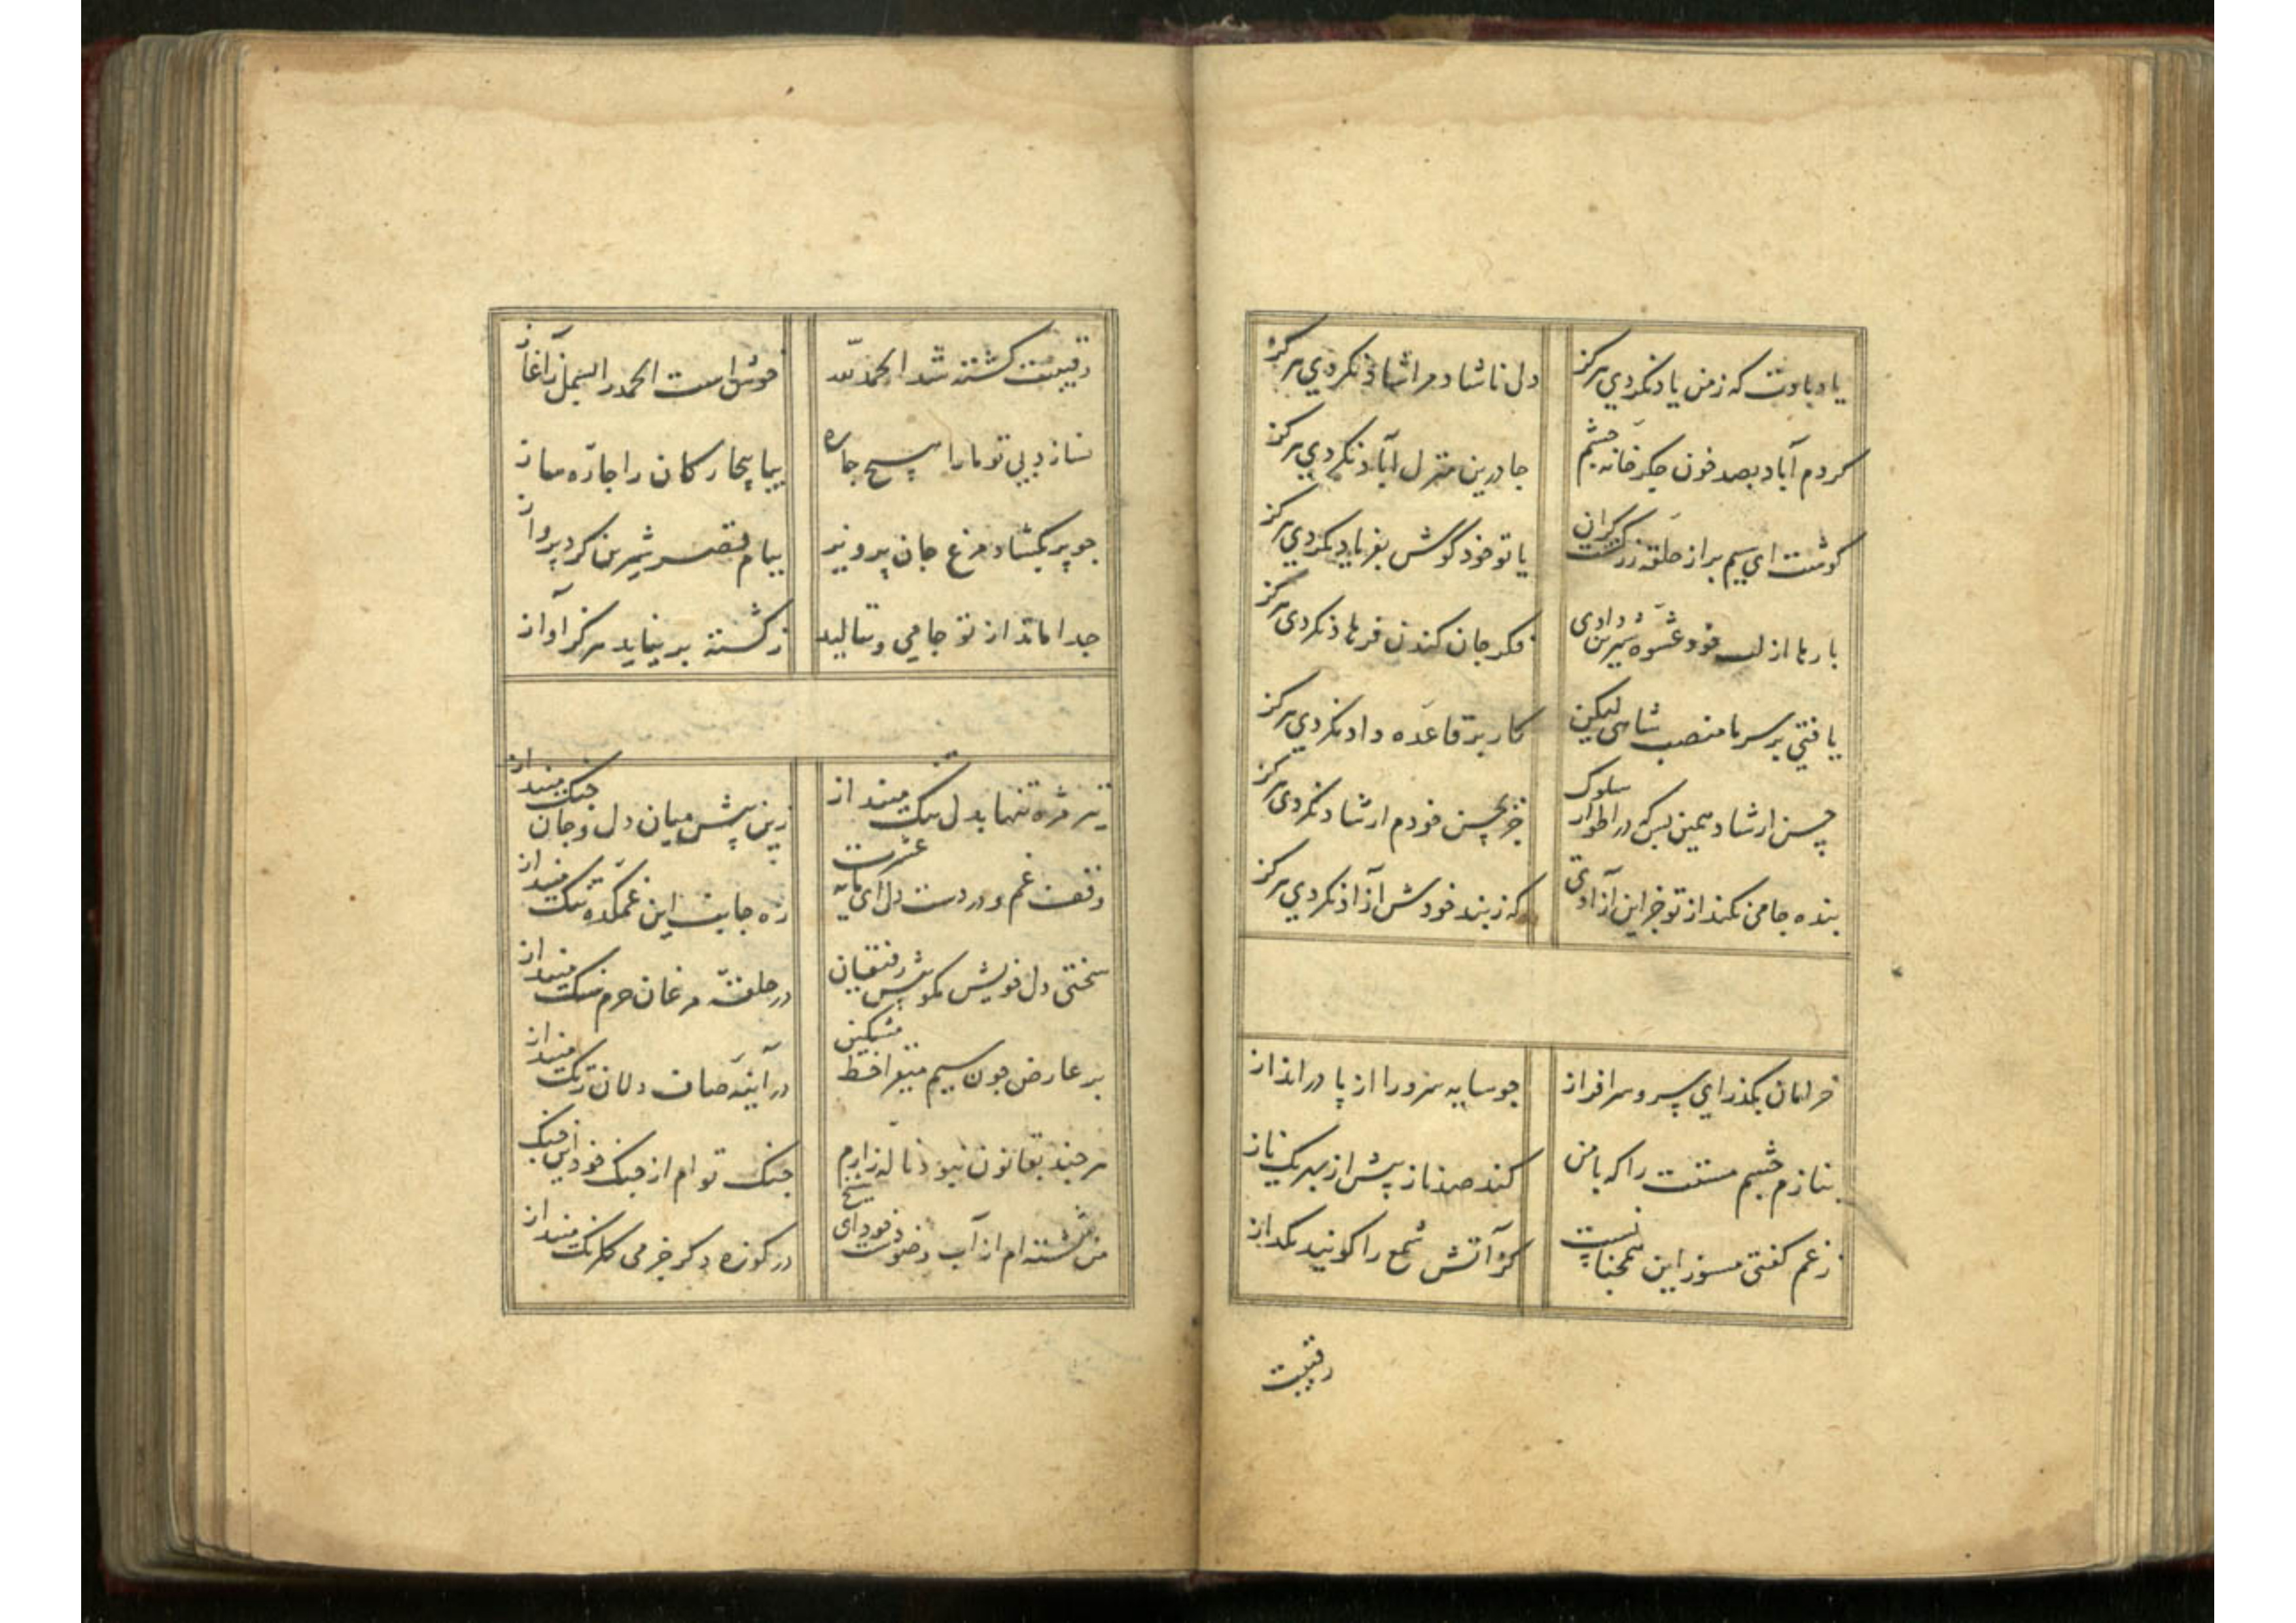 یاد بادت که ز من یاد نکردی هرکز
دل ناشاد مرا شاد نکردی هرکز
کردم آباد بصد خون جکر خانه چشم
جا درین منزل آباد نکردی هرکز
کوشت ای سیم بر از حلقه زر کشت کران
یا تو خود کوش بفریاد نکردی هرکز
بارها از لب خود عشوه شیرین دادی
فکر جان کندن فرهاد نکردی هرکز
یافتی بر سر ما منصب شاهی لیکن
کار بر قاعده داد نکردی هرکز
حسن ارشاد همین بس که در اطوار سلوک
جز بحسن خودم ارشاد نکردی هرکز
بنده جامی نکند از تو جز این آزادی
که ز بند خودش آزاد نکردی هرکز
خرامان بکذر ای سرو سرافراز
چو سایه سرو را از پا درانداز
بنازم چشم مستت را که با من
کند صد ناز پیش از هر یک ناز
ز غم کفتی مسوز این همچنانست
کز آتش شمع را کویند بکداز
رقیبت
رقیبت کشته شد الحمد لله
خوش است الحمد را بسمل ز آغاز
نسازد بی تو ما را هیچ چاره
بیا بیچارکان را چاره ساز
چو پر بکشاد مرغ جان پرویز
ببام قصر شیرین کرد پرواز
جدا ماند از تو جامی و ننالید
ز کشته بر نیاید هرکز آواز
تیر مژه تنها بدل تنک مینداز
زین بیش میان دل و جان جنک مینداز
وقفست غم و درد ت دل ای مایه عشرت
ره جانب این غمکده تنک مینداز
سختی دل خویش مکو پیش رفیقان
در حلقه مرغان حرم سنک مینداز
بر عارض چون سیم میفزا خط مشکین
در آینه صاف دلان زنک مینداز
هرچند بقانون نبود ناله زارم
جنک توام از جنک خود این جنک
من شسته ام از آب وضو دست خود ای شیخ
در کوزه دکر جز می کلرنک مینداز